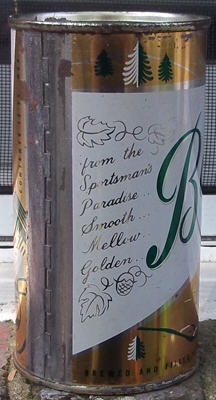 from the
Sportsman's
Paradise...
Smooth...
Mellow...
Golden...
B
BREWED AND